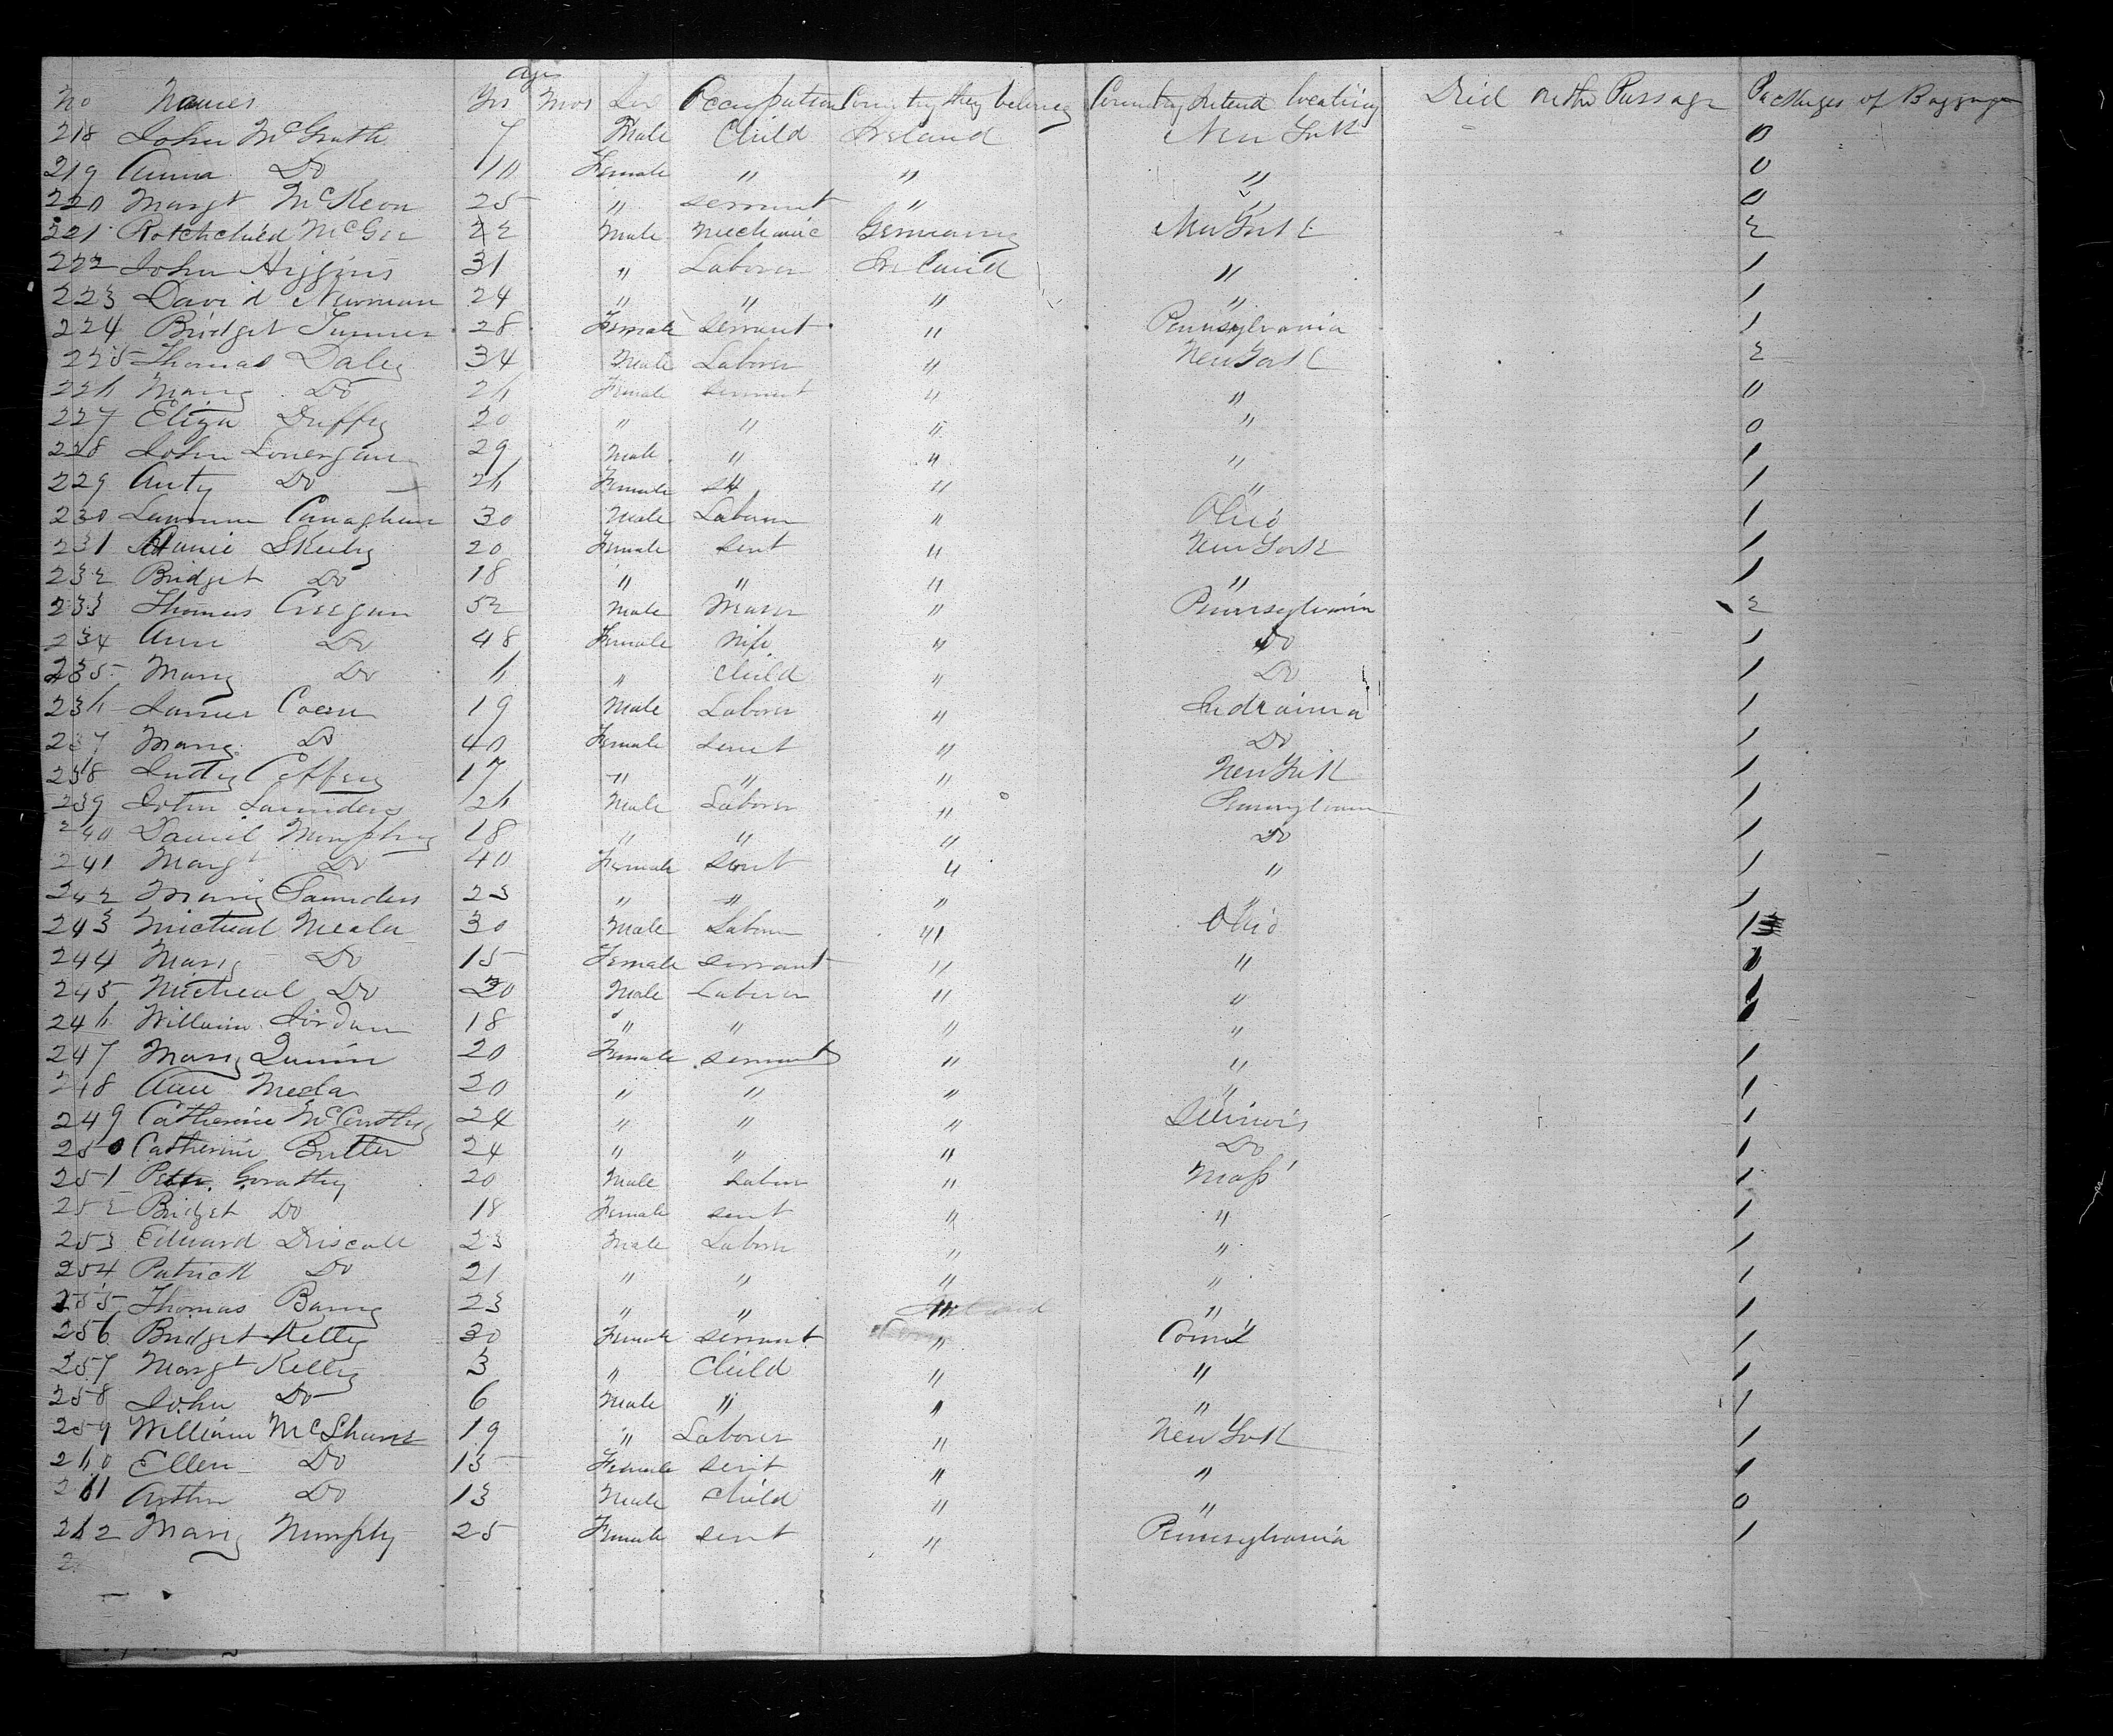 Ages
No Names Yrs Mos Sex Occupation Country they belong Country Intend locating Died on the Passage Packages of Baggage
218 John McGrath 7 Male Child Ireland New York 0
219 Anna Do 10 Female " " " 0
220 Margt McKeon 25 " servant " " 0
221 Rotchchild McGee 22 Male Mechanic Germany New York 2
222 John Higgins 31 " Laborer Ireland " 1
223 David Newman 24 " " " " 1
224 Bridget Turner 28 Female servant " Pennsylvania 1
225 Thomas Daley 34 Male Laborer " New York 2
226 Mary Do 26 Female servant " " 0
227 Eliza Duffy 20 " " " " 0
228 John Lonergan 29 Male " " " 1
229 Anty Do 26 Female " " 1
230 Canaghan 30 Male Laborer " Ohio 1
231 Skeely 20 Female sevt " New York 1
232 Bridget Do 18 " " " " 1
233 Thomas Creegan 52 Male Mason " Pennsylvania 2
234 Ann Do 48 Female Wife " Do 1
235 Mary Do 6 " Child " Do 1
236 James Coen 19 Male Laborer " Indrainna 1
237 Mary Do 40 Female servt " Do 1
238 Judy Coffey 17 " " " New York 1
239 John Saunders 26 Male Laborer " Pennsylvania 1
240 Daniel Murphy 18 " " " Do 1
241 Margt Do 40 Female servt " " 1
242 Mary Saunders 23 " " " " 1
243 Micheal Meala 30 Male Laborer " Ohio 1
244 Mary Do 15 Female servant " "
245 Micheal Do 30 Male Laborer " " 1
246 William Jordan 18 " " " " 1
247 Mary Quinn 20 Female servant " " 1
248 Ann Meela 20 " " " " 1
249 Catherine McCarthy 24 " " " Illinois 1
250 Catherine Butler 24 " " " Do 1
251 Peter Gorathy 20 Male Labor " Mass 1
252 Bridget Do 18 Female sevt " " 1
253 Edward Driscall 23 Male Laborer " " 1
254 Patrick Do 21 " " " " 1
255 Thomas Barry 23 " " " " 1
256 Bridget Kelly 30 Female servant " Connt 1
257 Margt Kelly 3 " Child " " 1
258 John Do 6 Male " " " 1
259 William McShane 19 " Laborer " New York 1
260 Ellen Do 15 Female sevt " " 1
261 Arthur Do 13 Male Child " " 0
262 Mary Murphy 25 Female sevt " Pennsylvania 1
2